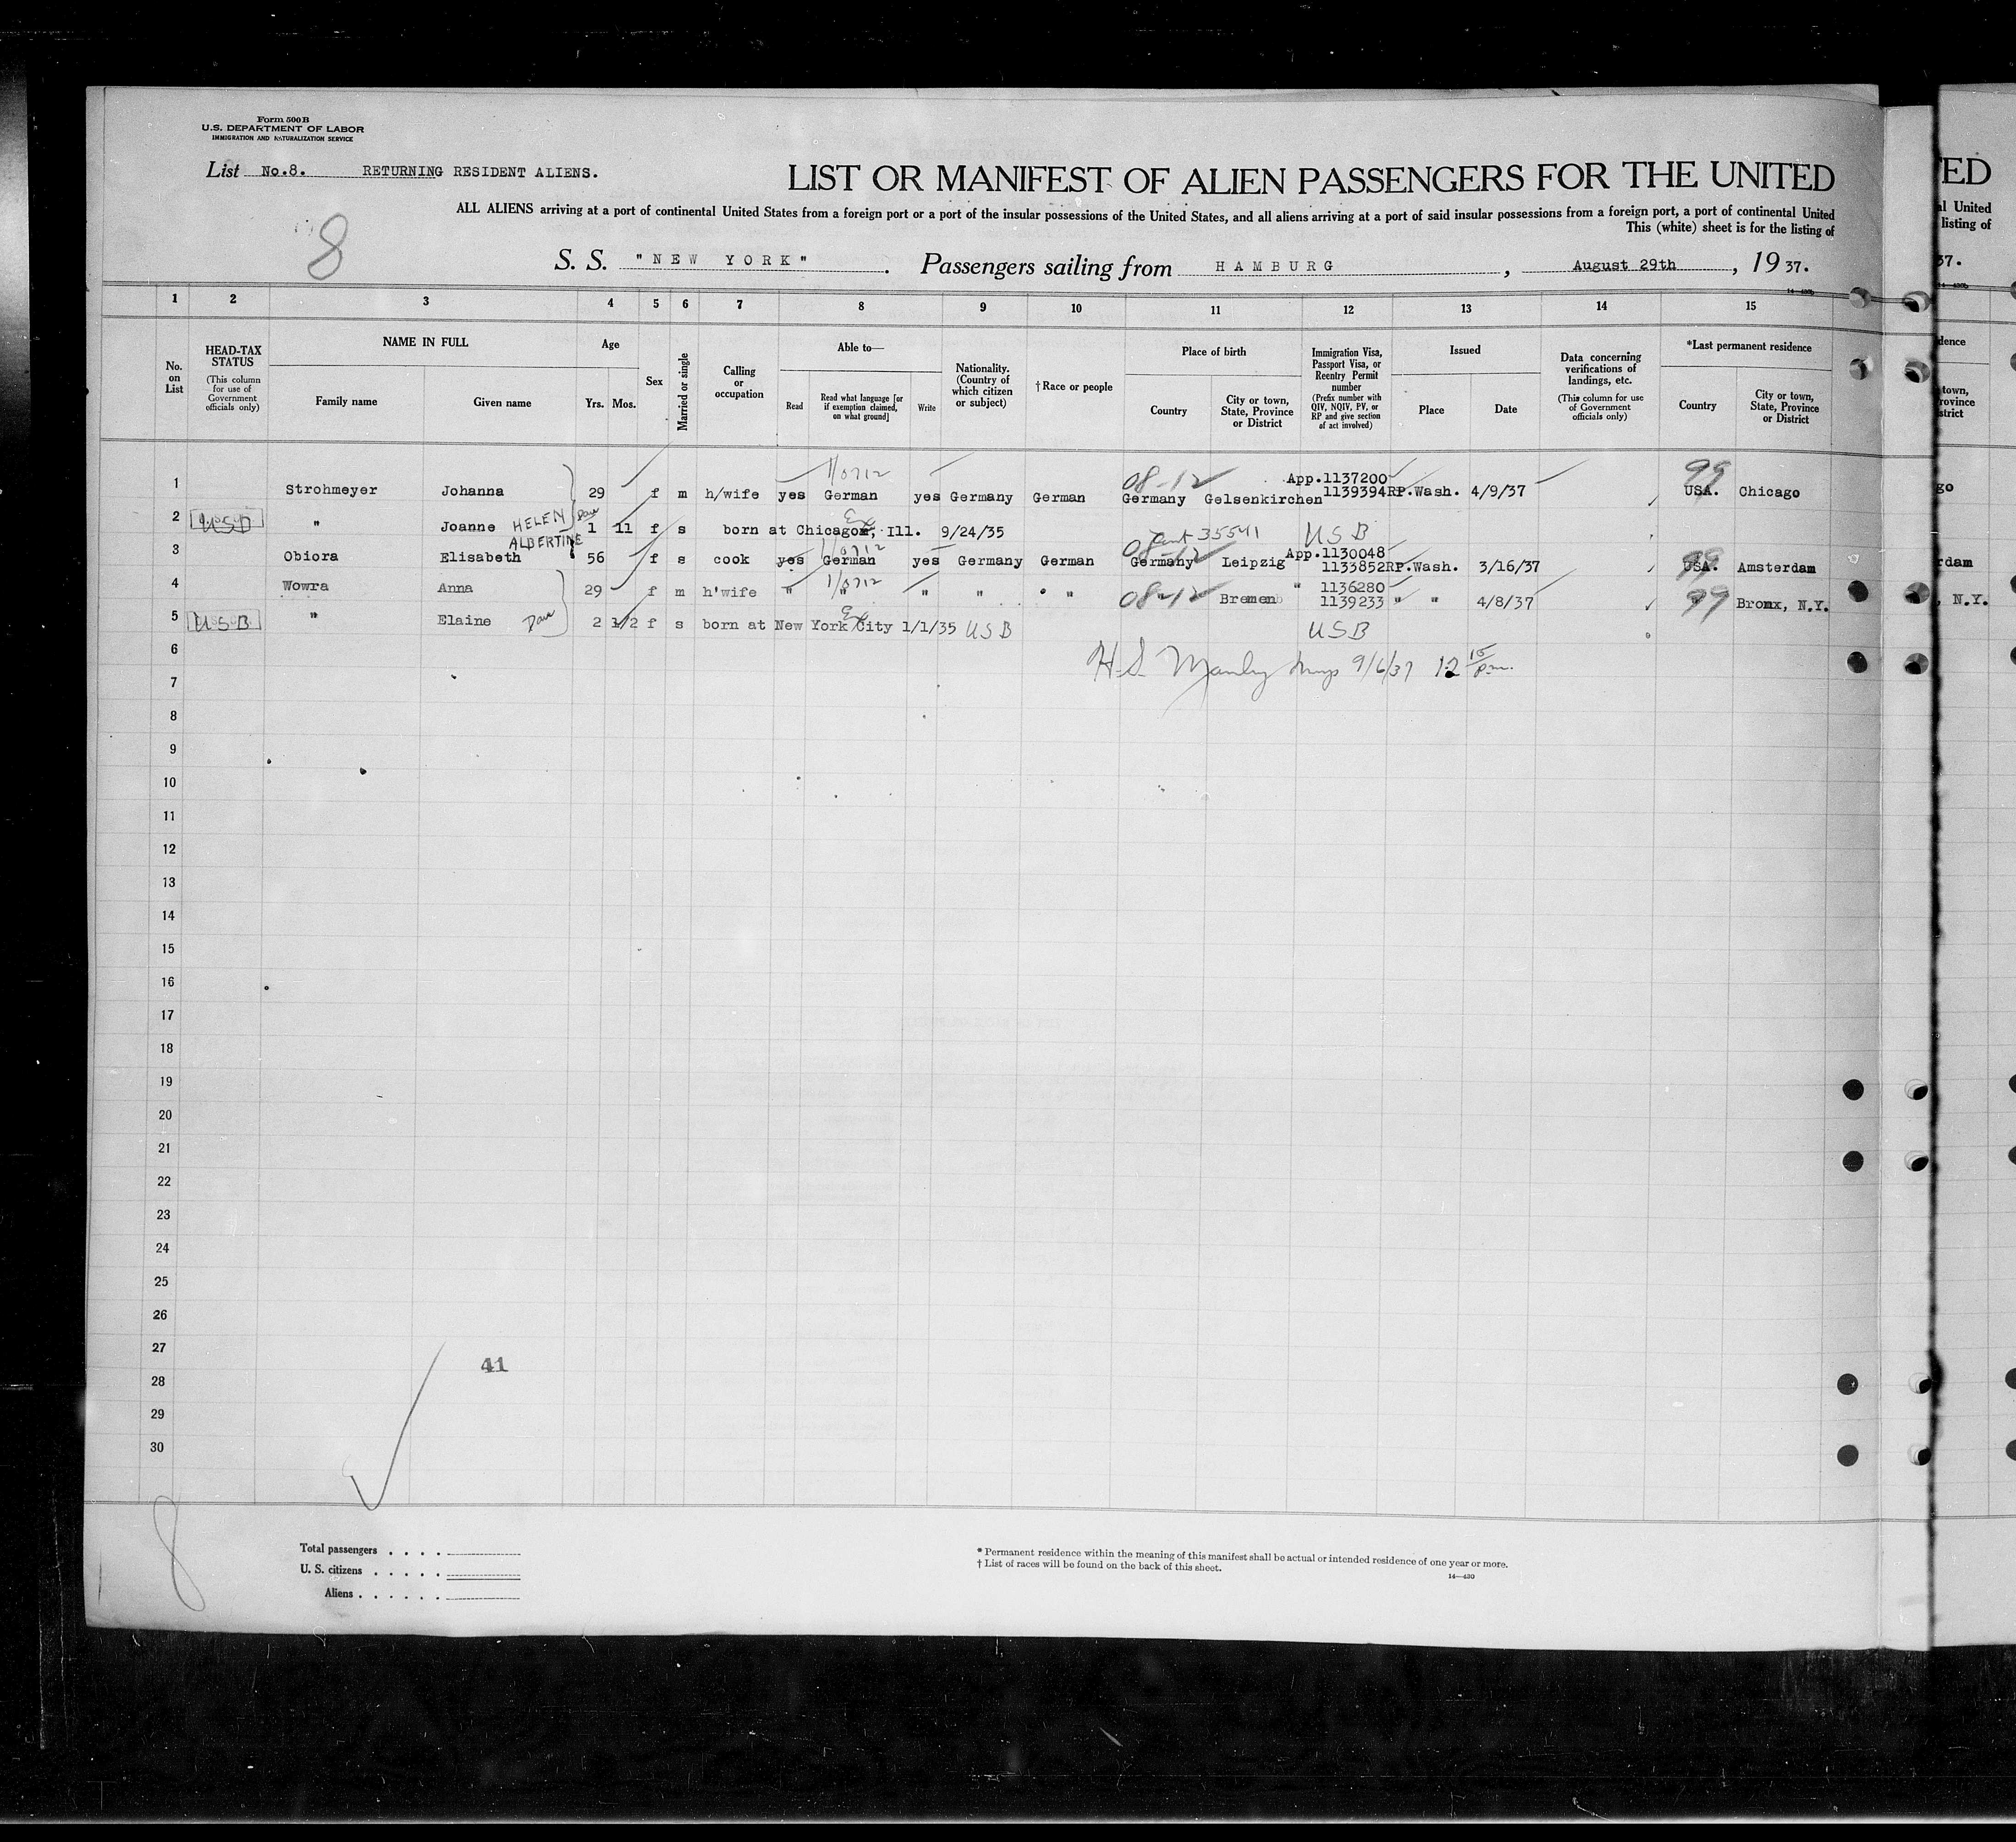 Form 500B
U.S. DEPARTMENT OF LABOR
IMMIGRATION AND NATURALIZATION SERVICE
List No.8. RETURNING RESIDENT ALIENS.
LIST OR MANIFEST OF ALIEN PASSENGERS FOR THE UNITED
ALL ALIENS arriving at a port of continental United States from a foreign port or a port of the insular possessions of the United States, and all aliens arriving at a port of said insular possessions from a foreign port, a port of continental United
This (white) sheet is for the listing of
8
S. S. "NEW YORK". Passengers sailing from HAMBURG, August 29th, 19 37.
14—430b
1 2 3 4 5 6 7 8 9 10 11 12 13 14 15
No. on List
HEAD-TAX STATUS
(This column for use of Government officials only)
NAME IN FULL
Family name
Given name
Age
Yrs. Mos.
Sex
Married or single
Calling or occupation
Able to—
Read
Read what language [or if exemption claimed, on what ground]
Write
Nationality. (Country of which citizen or subject)
†Race or people
Place of birth
Country
City or town, State, Province or District
Immigration Visa, Passport Visa, or Reentry Permit number
(Prefix number with QIV, NQIV, PV, or RP and give section of act involved)
Issued
Place
Date
Data concerning verifications of landings, etc.
(This column for use of Government officials only)
*Last permanent residence
Country
City or town, State, Province or District
1/0712 08-12 App.1137200 99
1 Strohmeyer Johanna 29 f m h/wife yes German yes Germany German Germany Gelsenkirchen 1139394RP.Wash. 4/9/37 USA. Chicago
2 USB " Joanne HELEN ALBERTINE Dau 1 11 f s born at Chicago, Ill. 9/24/35 35541 USB
1/0712 08-12 App.1130048 99
3 Obiora Elisabeth 56 f s cook yes German yes Germany German Germany Leipzig 1133852RP.Wash. 3/16/37 USA. Amsterdam
1/0712 " 1136280
4 Wowra Anna 29 f m h'wife " " " " " 08-12 Bremen 1139233 " " 4/8/37 99 Bronx, N.Y.
5 USB " Elaine Dau 2 1/2 f s born at New York City 1/1/35 USB USB
6
H.S. Manley Insp 9/6/37 12 15/pm.
7
8
9
10
11
12
13
14
15
16
17
18
19
20
21
22
23
24
25
26
27
41
28
29
30
8
Total passengers . . . .
U. S. citizens . . . . .
Aliens . . . . . .
* Permanent residence within the meaning of this manifest shall be actual or intended residence of one year or more.
† List of races will be found on the back of this sheet.
14—430
ED
al United
listing of
37.
14—430b
dence
town,
rovince
strict
go
rdam
, N.Y.